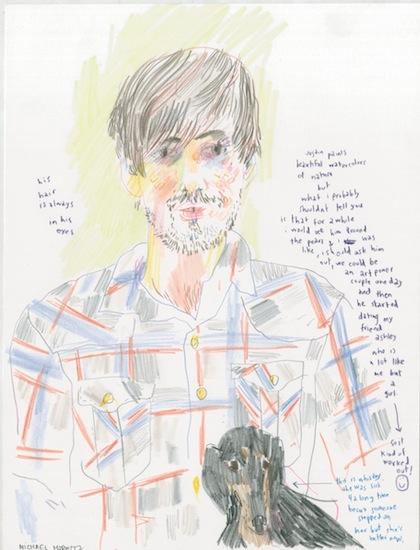 his
hair
is always
in his
eyes
justin paints
beautiful watercolors
of nature
but
what i probably
shouldn't tell you
is that for a while
i would see him around
the parks & was
like, i should ask him
out, we could be
an art power
couple one day
and then
he started
dating my
friend
ashley
who is
a lot like
me but
a
girl
so it
kind of
worked
out!
this is whiskey
she was sick
4 a long time
because someone
stepped on
her but she's
better now!
MICHAEL HOROWITZ